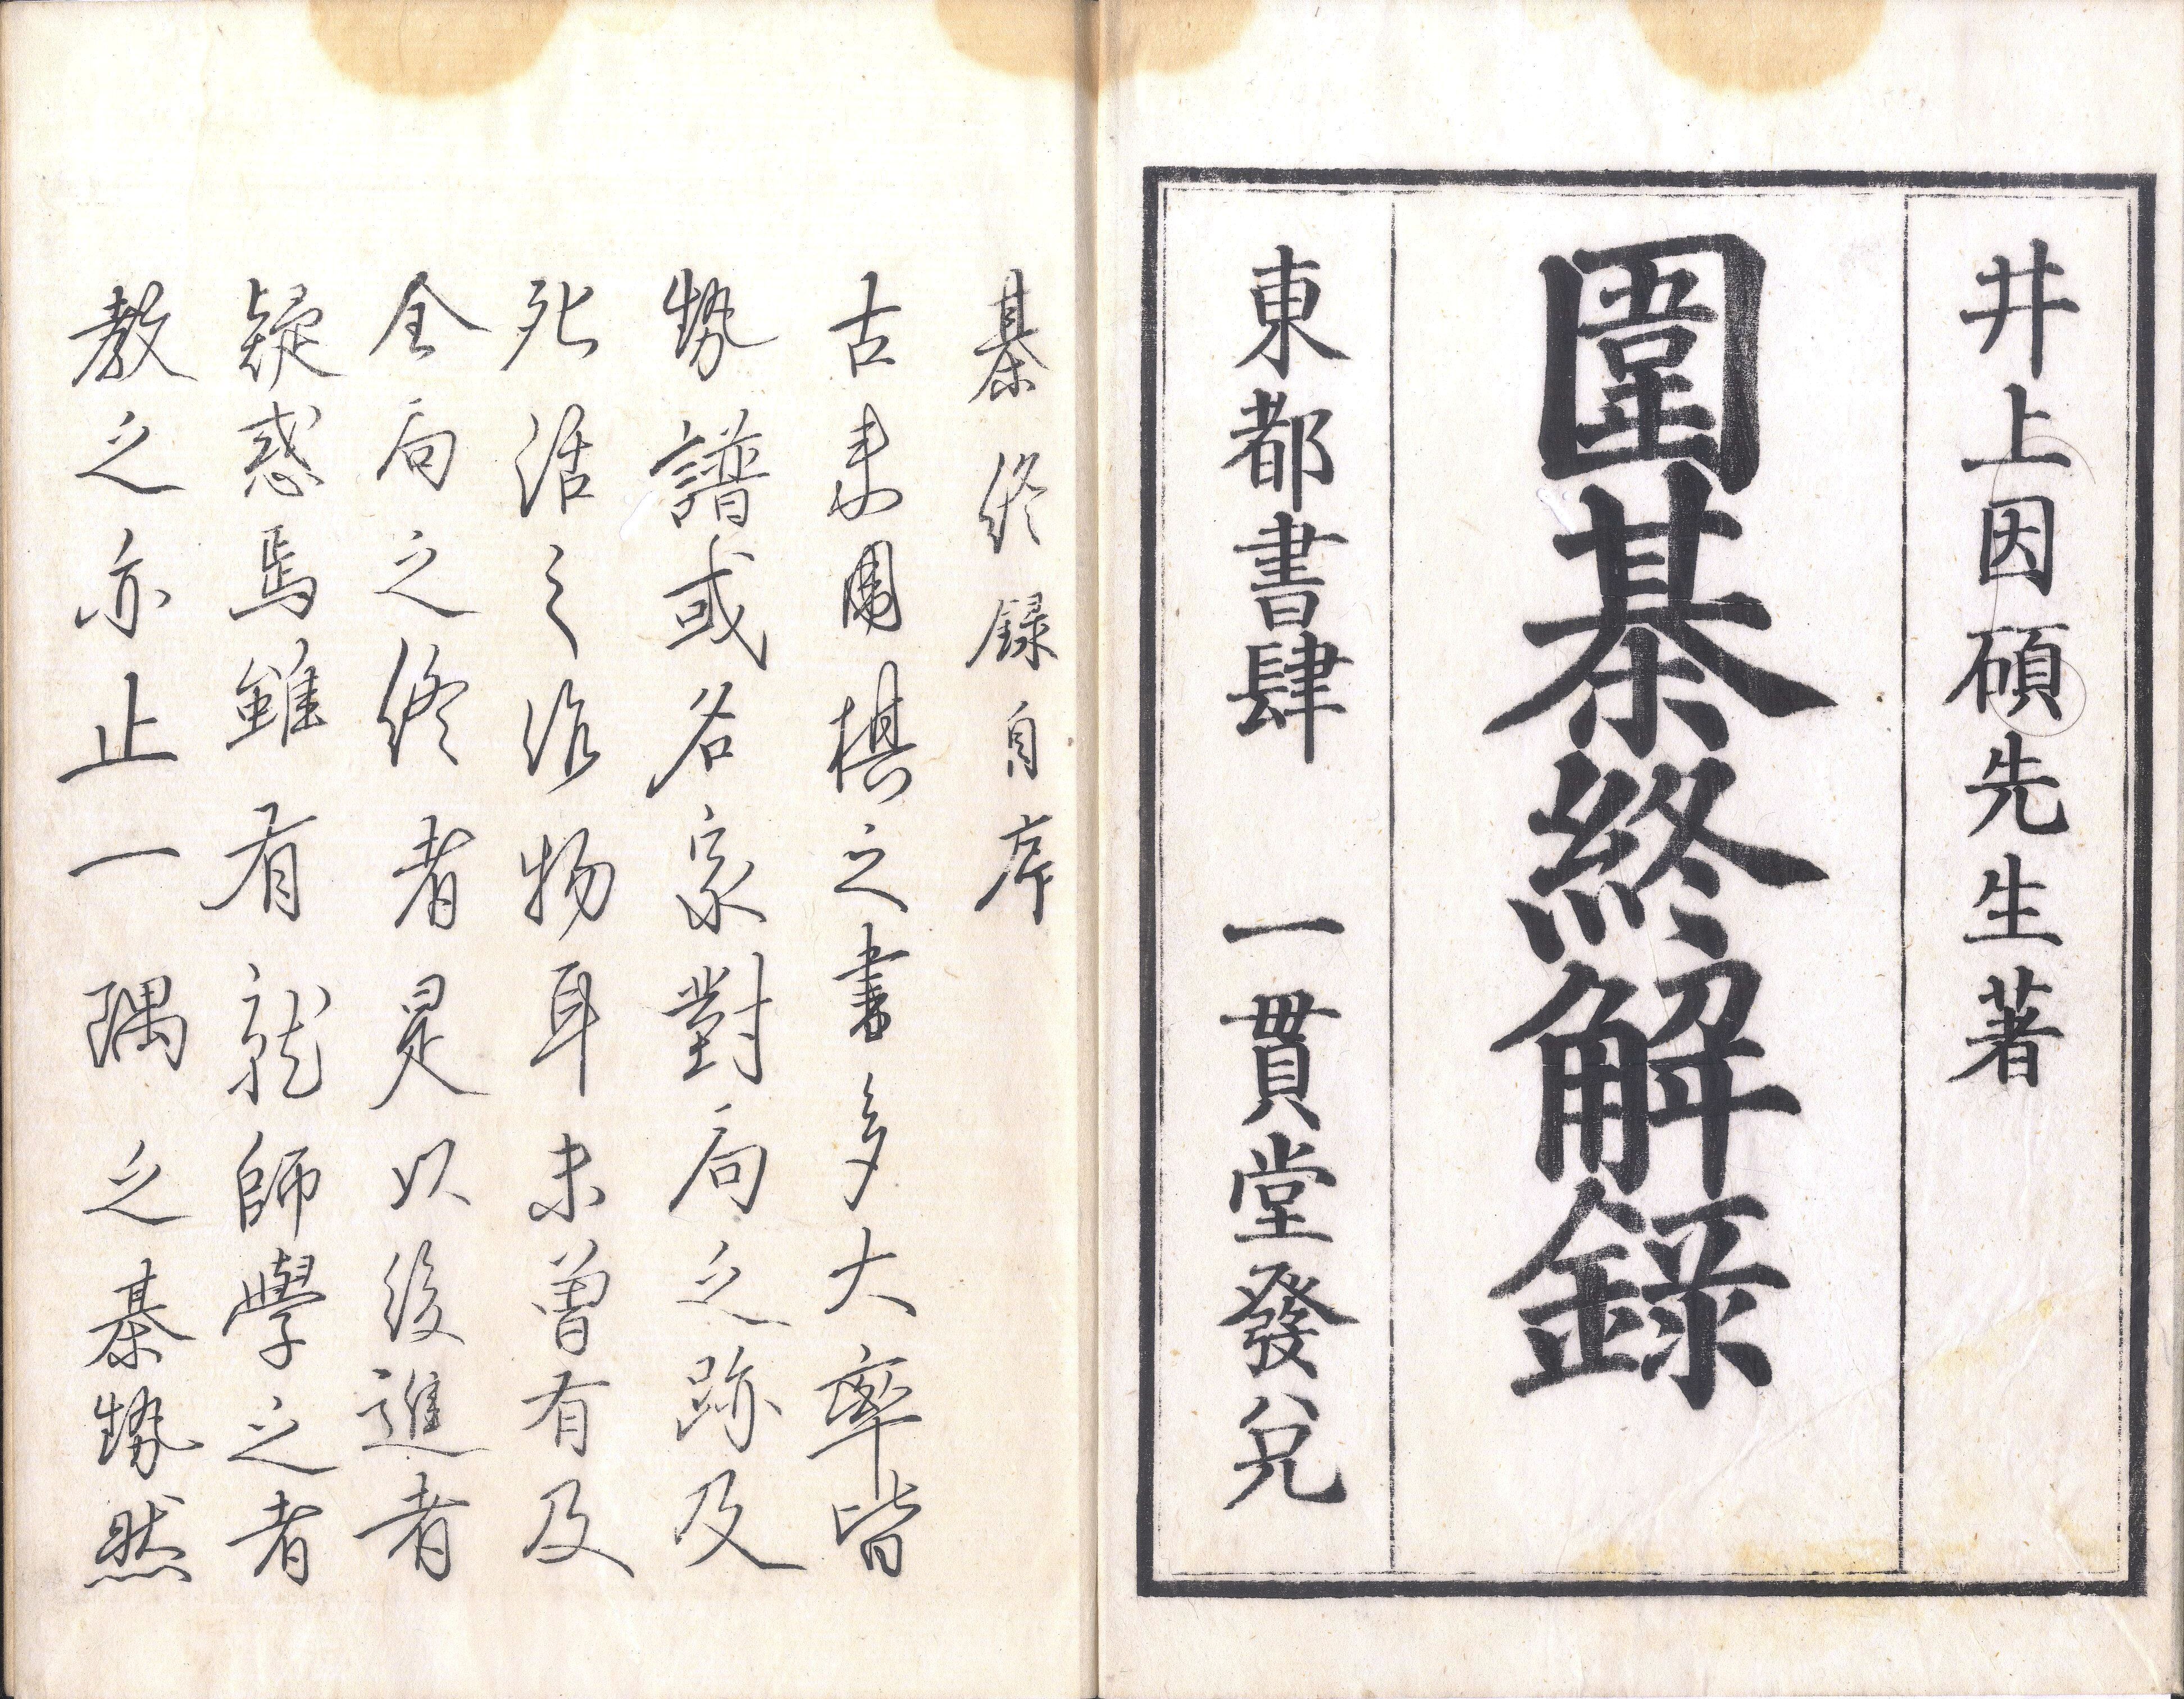 井上因碩先生著
圍棊終解錄
東都書肆　一貫堂發兌
棊終録自序
古来圍棋之書多大率皆
勢譜或名家對局之跡及
死活之作物耳未曽有及
全局之終者是以後進者
疑惑焉雖有就師學之者
教之亦止一隅之棊勢然